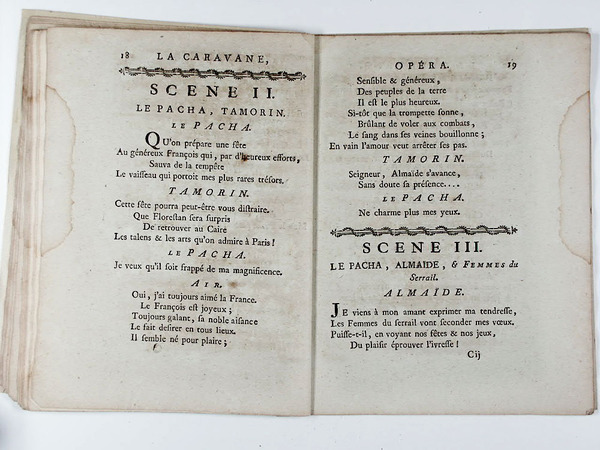 18 LA CARAVANE,
SCENE II.
LE PACHA, TAMORIN.
LE PACHA.
QU'on prépare une fête
Au généreux François qui, par d'heureux efforts,
Sauva de la tempête
Le vaisseau qui portoit mes plus rares trésors.
TAMORIN.
Cette fête pourra peut-être vous distraire.
Que Florestan sera surpris
De retrouver au Caire
Les talens & les arts qu'on admire à Paris!
LE PACHA.
Je veux qu'il soit frappé de ma magnificence.
AIR.
Oui, j'ai toujours aimé la France.
Le François est joyeux;
Toujours galant, sa noble aisance
Le fait desirer en tous lieux.
Il semble né pour plaire;
OPÉRA. 19
Sensible & généreux,
Des peuples de la terre
Il est le plus heureux.
Si-tôt que la trompette sonne,
Brûlant de voler aux combats,
Le sang dans ses veines bouillonne;
En vain l'amour veut arrêter ses pas.
TAMORIN.
Seigneur, Almaïde s'avance,
Sans doute sa présence....
LE PACHA.
Ne charme plus mes yeux.
SCENE III.
LE PACHA, ALMAÏDE, & FEMMES du
Serrail.
ALMAÏDE.
JE viens à mon amant exprimer ma tendresse,
Les Femmes du serrail vont seconder mes vœux.
Puisse-t-il, en voyant nos fêtes & nos jeux,
Du plaisir éprouver l'ivresse!
Cij